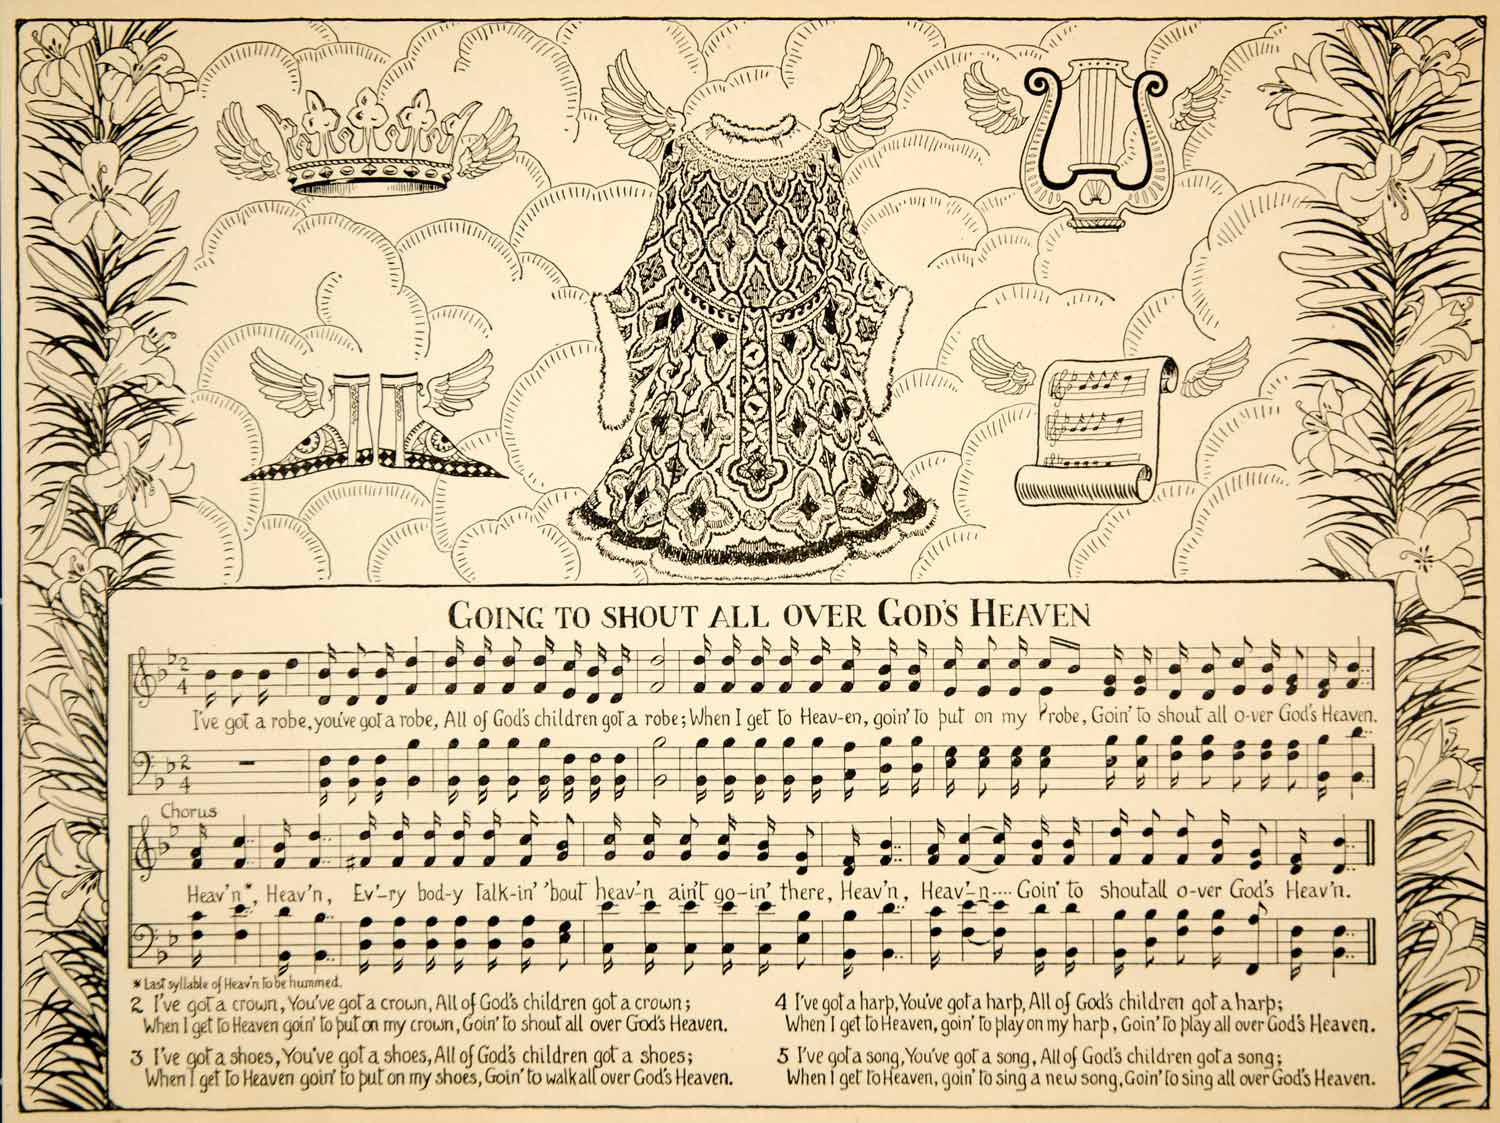 GOING TO SHOUT ALL OVER GOD'S HEAVEN
2
4
I've got a robe, you've got a robe, All of God's children got a robe; When I get to Heav-en, goin' to put on my robe, Goin' to shout all o-ver God's Heaven.
2
4
Chorus
Heav'n*, Heav'n, Ev'-ry bod-y talk-in' 'bout heav'-n ain't go-in' there, Heav'n, Heav'-n.... Goin' to shoutall o-ver God's Heav'n.
* Last syllable of Heav'n to be hummed.
2 I've got a crown, You've got a crown, All of God's children got a crown;
When I get to Heaven goin' to put on my crown, Goin' to shout all over God's Heaven.
3 I've got a shoes, You've got a shoes, All of God's children got a shoes;
When I get to Heaven goin' to put on my shoes, Goin' to walk all over God's Heaven.
4 I've got a harp, You've got a harp, All of God's children got a harp;
When I get to Heaven, goin' to play on my harp, Goin' to play all over God's Heaven.
5 I've got a song, You've got a song, All of God's children got a song;
When I get to Heaven, goin' to sing a new song, Goin' to sing all over God's Heaven.